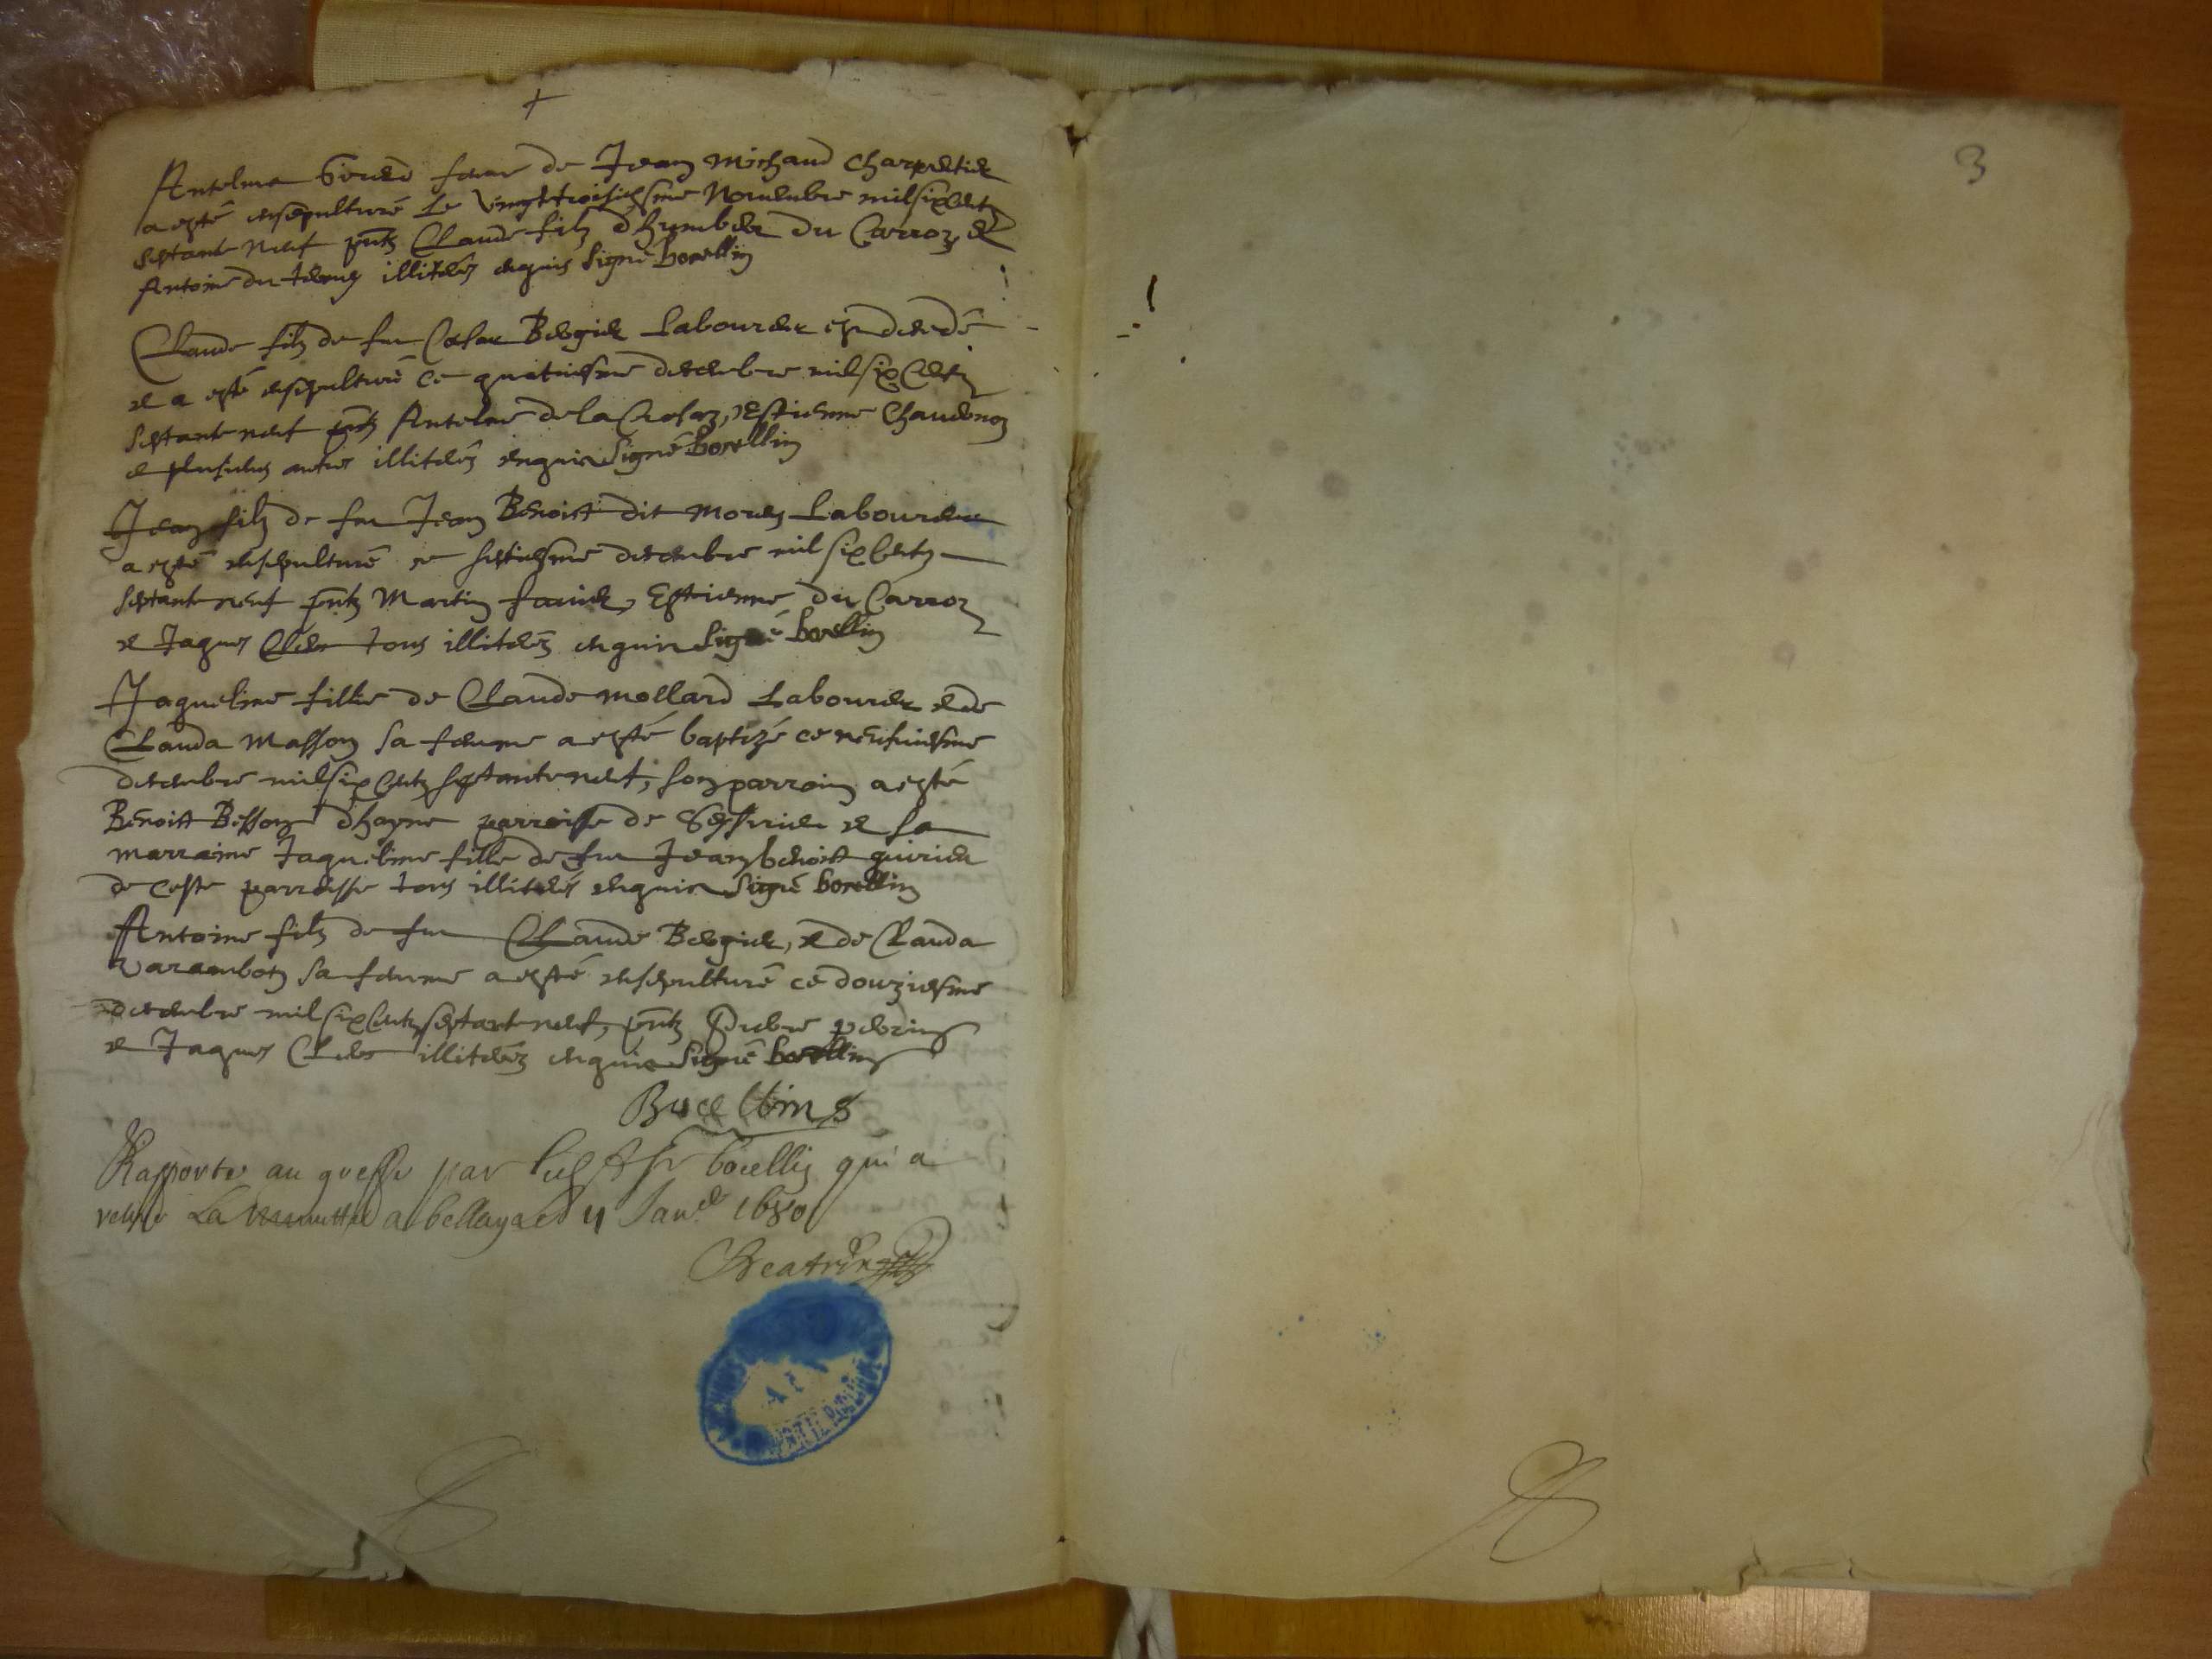 3
Antelma femme de Jean Michaud charpentier
a esté ensepulturé le vingt troisiesme Novembre mil six centz
septante neuf pntz Claude filz d'humbert du Carroz, et
Antoine du illiterés enquis signé bocellin
Claude filz de feu Cesar Bergier Laboureur est decedé
et a esté ensepulturé ce quatriesme decembre mil six centz
septante neuf pntz Antelme de la Estienne Chaudenoz
et plusieurs autres illiterés enquis signé bocellin
Jean filz de feu Jean Benoist dit Laboureur
a esté ensepulturé ce septiesme decembre mil six centz
septante neuf pntz Martin Estienne du Carroz
et Jaques tous illiterés enquis signé bocellin
Jaqueline fillie de Claude Mollard Laboureur et de
Clauda Masson sa femme a esté baptizé ce neufviesme
decembre mil six centz septante neuf, son parrain a esté
Benoist Besson parroisse de et sa
marraine Jaqueline fille de feu Jean benoist
de ceste parroisse tous illiterés enquis signé bocellin
Antoine filz de feu Claude Bergier, et de Clauda
Varambon sa femme a esté ensepulturé ce douziesme
decembre mil six centz septante neuf, pntz Piebre
et Jaques illiterés enquis signé bocellin
Bucellin
Rapporté au greffe par bocellin qui a
La a 11 Janv 1680
AIN